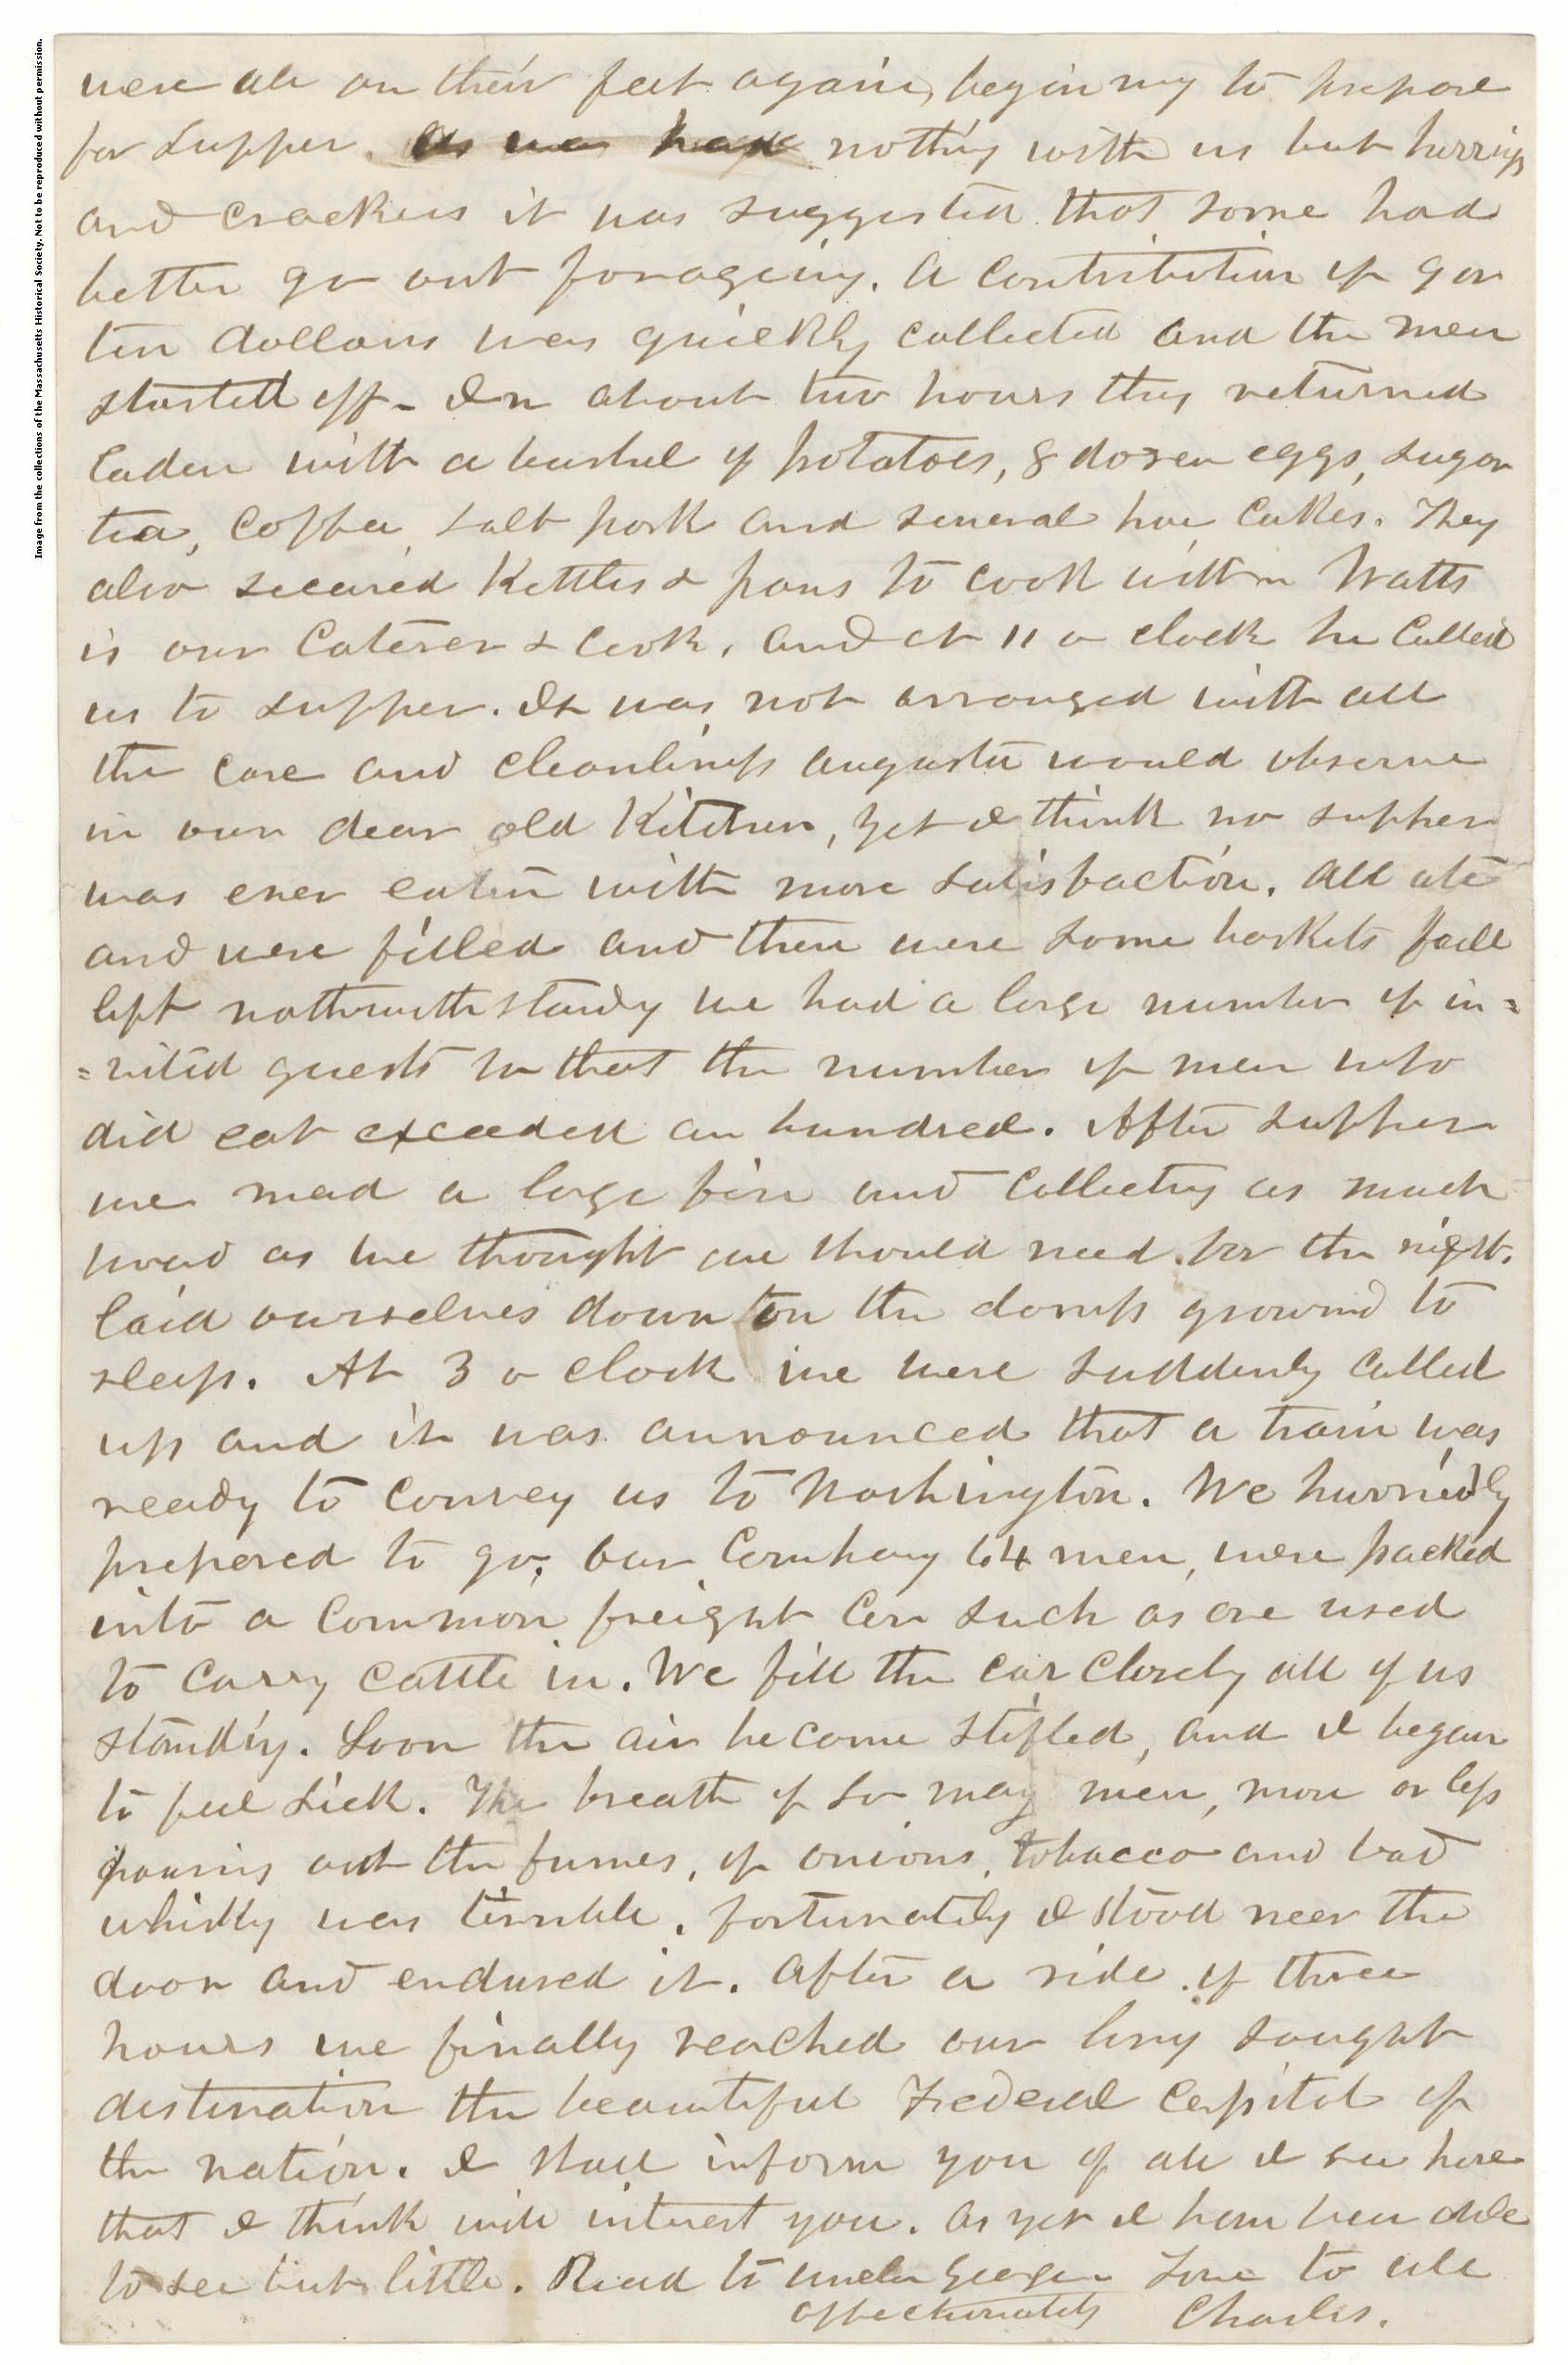 Image from the collections of the Massachusetts Historical Society. Not to be reproduced without permission.
were all on their feet again, begin ing to prepare
for supper. As we have nothing with us but herrings
and crackers it was suggested that some had
better go out forageing. A contribution of
ten dollars was quickly collected and the men
started off - In about two hours they returned
laden with a bushel of potatoes, 8 dozen eggs, sugar
tea, coffee, salt pork and several hoe cakes. They
also secured kettles & pans to cook with Watts
is our caterer & cook, and at 11 o clock he called
us to supper. It was not arranged with all
the care and cleanliness augusta would observe
in our dear old kitchen, yet I think no supper
was ever eaten with more satisfaction. All ate
and were filled and there were some baskets full
left nothwithstandg we had a large number of in=
=vited guests so that the number of men who
did eat exceeded an hundred. After supper
we mad a large fire and collecting as much
wood as we thought we should need for the night.
laid ourselves down on the damp ground to
sleep. At 3 o clock we were suddenly called
up and it was announced that a train was
ready to convey us to Washington. We hurriedly
prepared to go, our Company 64 men, were packed
into a common freight car such as are used
to carry cattle in. We fill the car closely all of us
standing. Soon the air became stifled, and I began
to feel sick. The breath of so may men, more or less
pouring out the fumes, of onions, tobacco and bad
whisky was terrible. fortunately I stood near the
door and endured it. After a ride of three
hours we finally reached our long sought
destination the beautiful Federal Capitol of
the nation. I shall inform you of all I see here
that I think will interest you. As yet I have been able
to see but little. Read to uncle George Love to all
affectionately Charles.